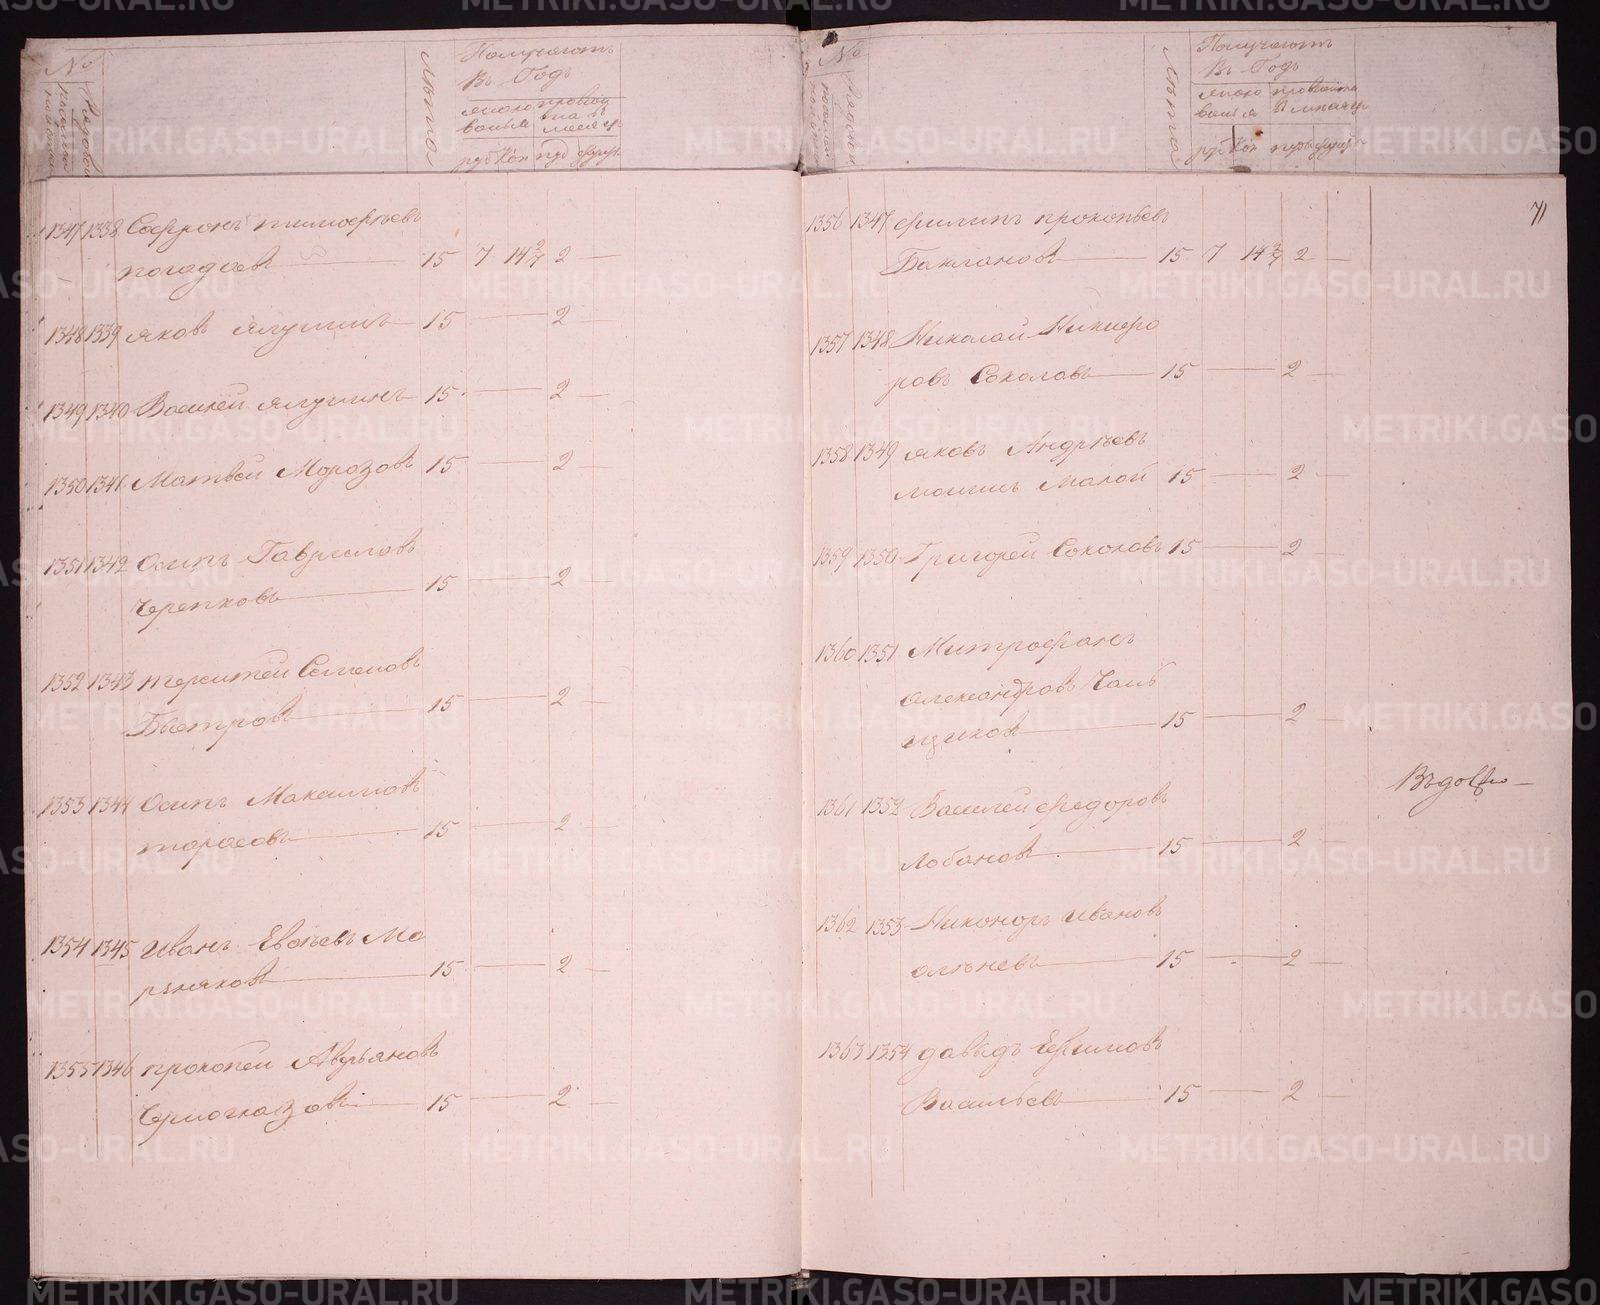 №
Лѣта
Получаютъ
въ Годъ
жало
ванья
провіан
та въ
месяцъ
руб Коп пуд фунт
1347 1338 Софронъ тимофѣевъ
погадаевъ 15 7 14 2/7 2 —
1348 1339 яковъ ялунинъ 15 — 2 —
1349 1340 Василей ялунинъ 15 — 2 —
1350 1341 Матвей Морозовъ 15 — 2 —
1351 1342 Осипъ Гавриловъ
Черепковъ 15 — 2 —
1352 1343 терентей Семеновъ
Быстровъ 15 — 2 —
1353 1344 Осипъ Максимовъ
тарасовъ 15 — 2 —
1354 1345 Иванъ Евсѣевъ Ма
15 — 2 —
1355 1346 прокопей Аверьяновъ
Черноглазовъ 15 — 2 —
№
Лѣта
Получаютъ
Въ Годъ
жало
ванья
провіанта
в месяцъ
руб Коп пудъ фунтъ
71
1356 1347 филипъ прокопьевъ
15 7 14 2/7 2 —
1357 1348 Николай Никифо
ровъ Соколовъ 15 — 2 —
1358 1349 яковъ Андрѣевъ
малой 15 — 2 —
1359 1350 Григорей Соколовъ 15 — 2 —
1360 1351 Митрофанъ
Александровъ
щиковъ 15 — 2 —
1361 1352 Василей федоровъ
лобановъ 15 — 2 —
1362 1353 Никоноръ Ивановъ
15 — 2 —
1363 1354 давыдъ Ефимовъ
Васильевъ 15 — 2 —
METRIKI.GASO-URAL.RU